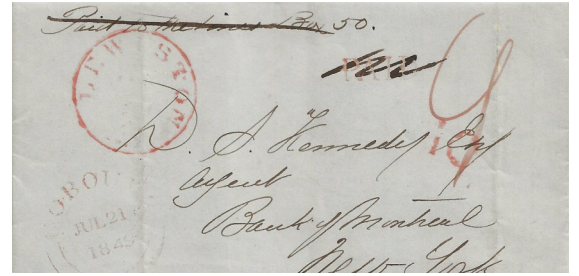 Paid to the lines Box 50.
LEWISTON
PAID
10
D. S. Kennedy Esq
Agent
Bank of Montreal
New York
JUL 21